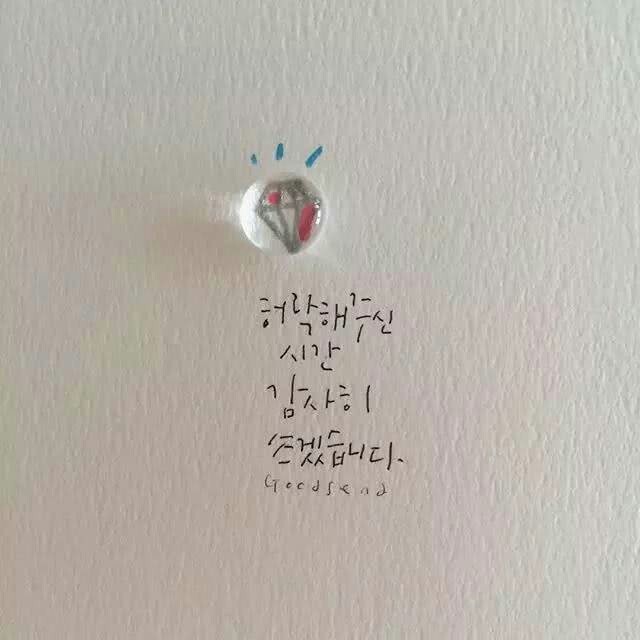 허락해주신
시간
감사히
쓰겠습니다.
Goodsend